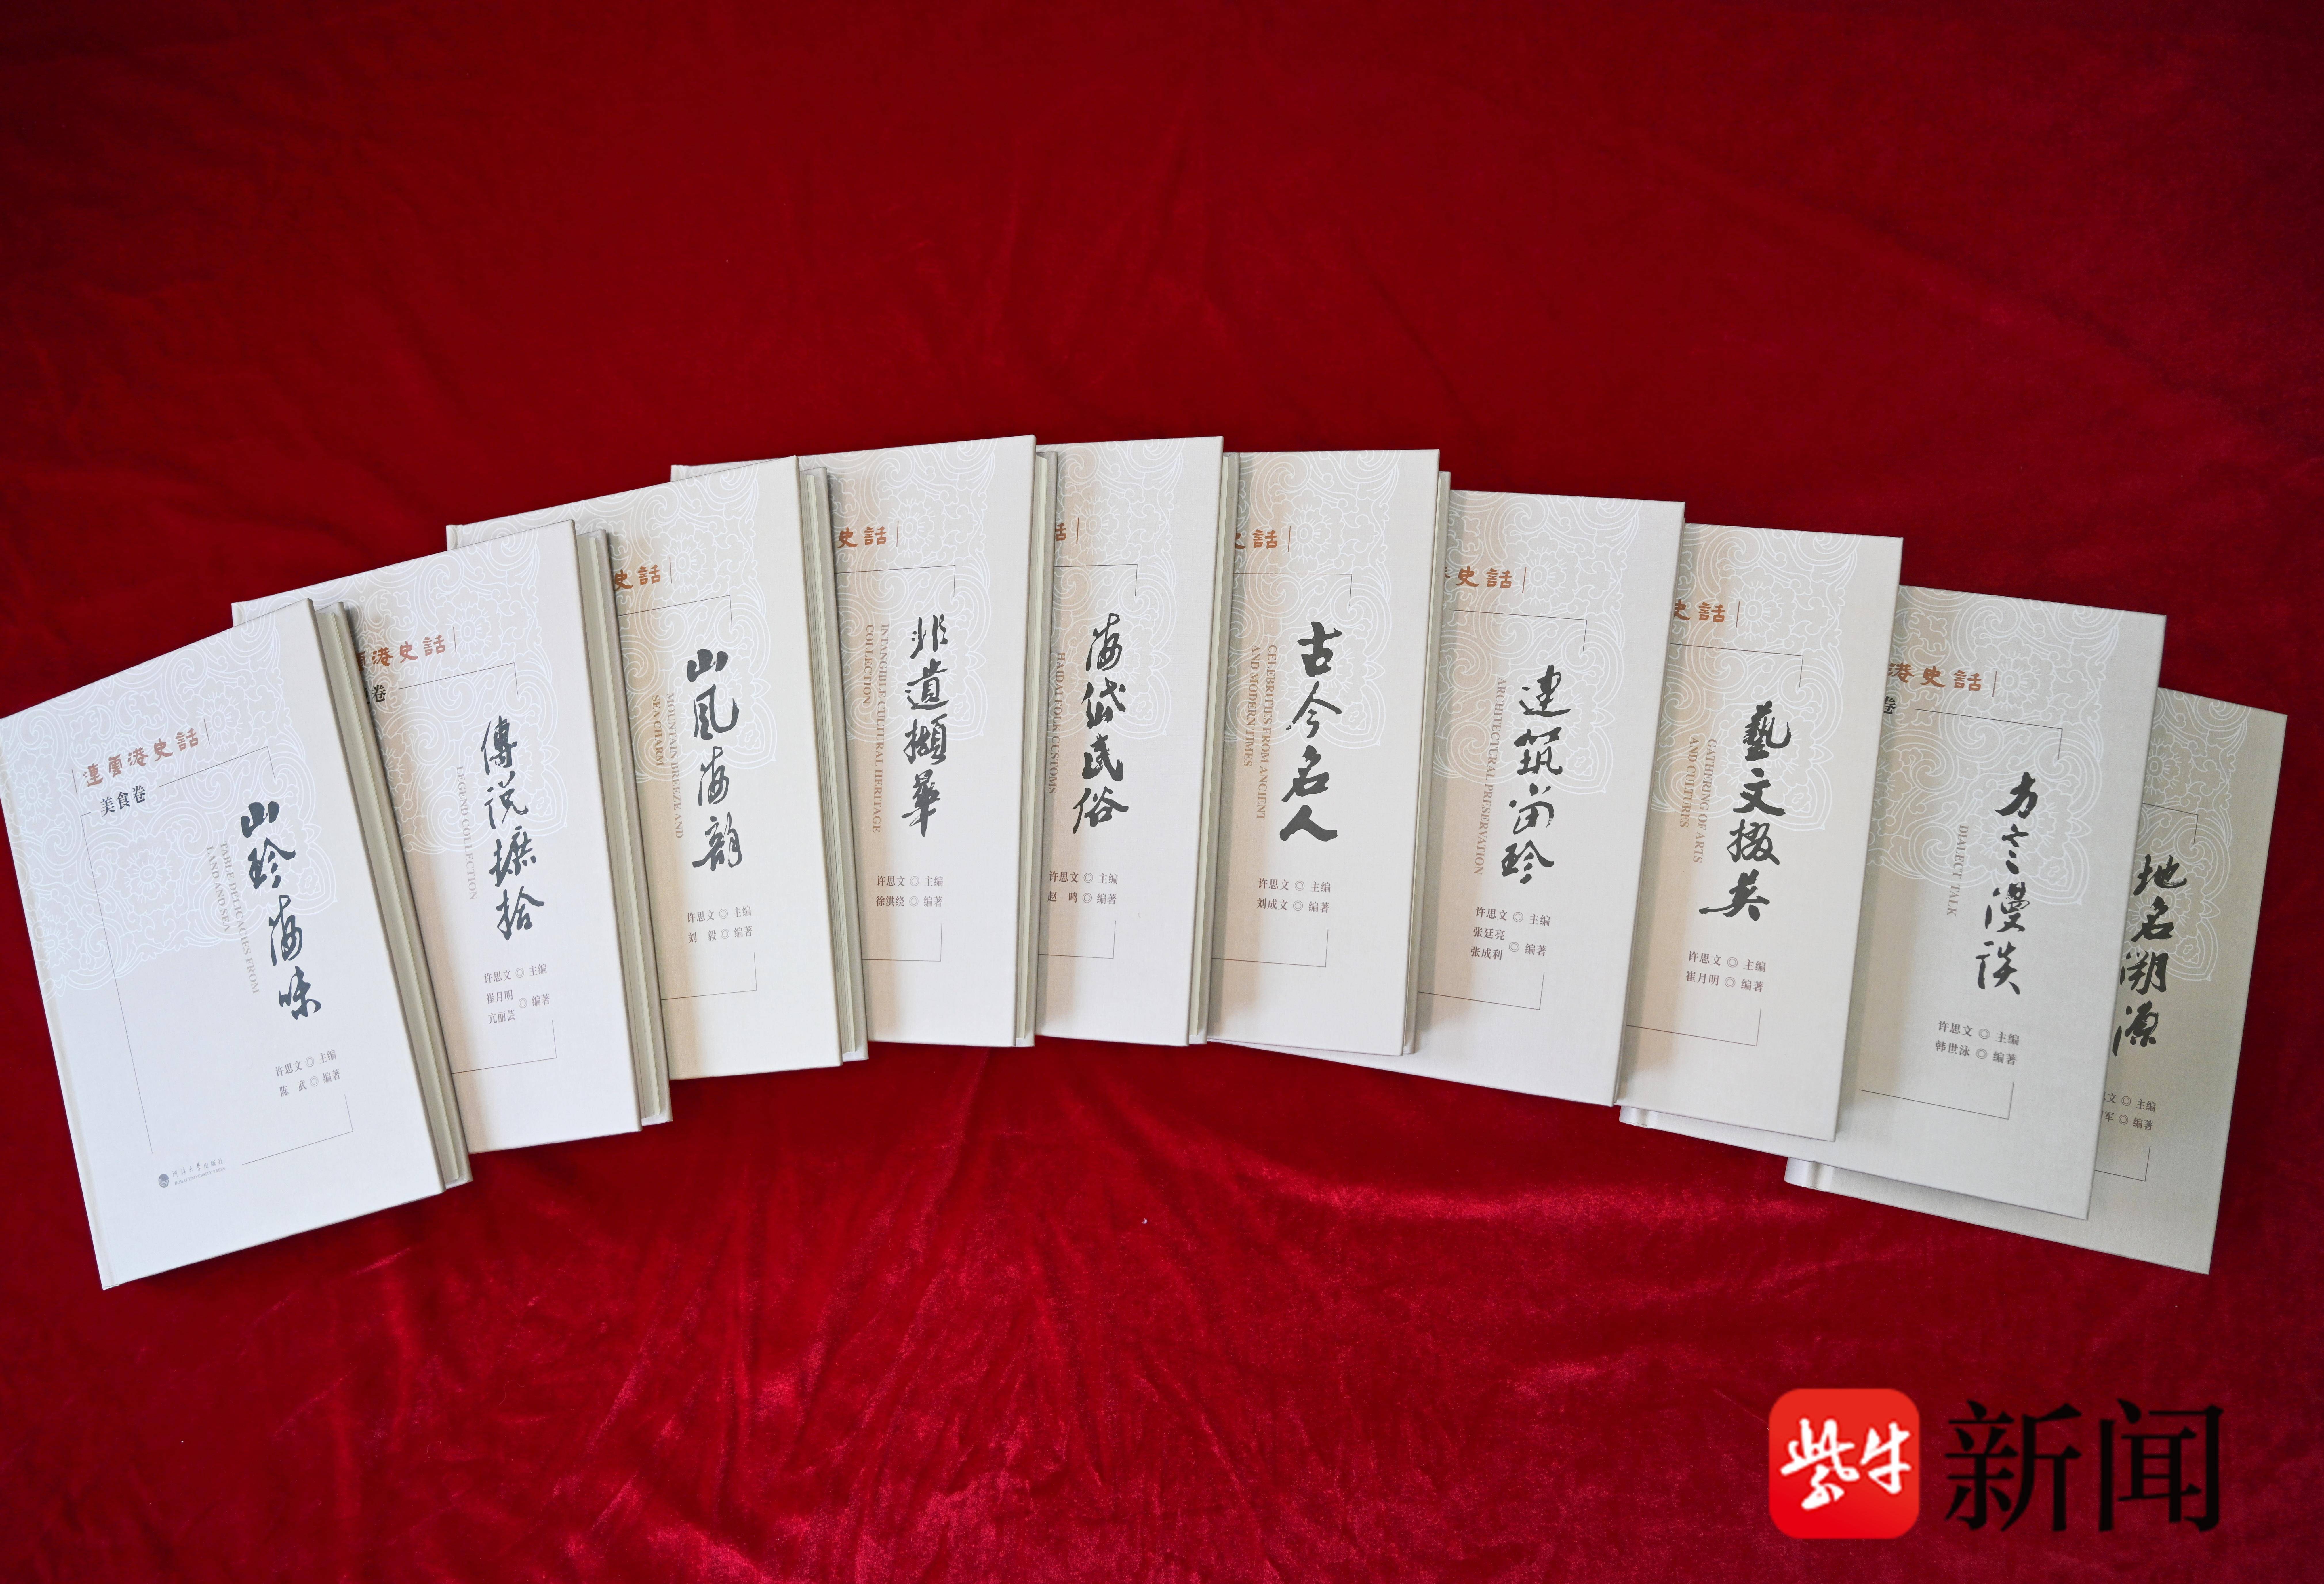 連雲港史話
美食卷
山珍海味
TABLE DELICACIES FROM
LAND AND SEA
许思文 ◎ 主编
陈 武 ◎ 编著
河海大学出版社
HOHAI UNIVERSITY PRESS
港史話
卷
傳說摭拾
LEGEND COLLECTION
许思文 ◎ 主编
崔月明
亢丽芸
◎ 编著
史話
山风海韵
MOUNTAIN BREEZE AND
SEA CHARM
许思文 ◎ 主编
刘 毅 ◎ 编著
史話
非遺擷華
INTANGIBLE CULTURAL HERITAGE
COLLECTION
许思文 ◎ 主编
徐洪绕 ◎ 编著
話
海岱民俗
HAIDAI FOLK CUSTOMS
许思文 ◎ 主编
赵 鸣 ◎ 编著
史話
古今名人
CELEBRITIES FROM ANCIENT
AND MODERN TIMES
许思文 ◎ 主编
刘成文 ◎ 编著
史話
建筑留珍
ARCHITECTURAL PRESERVATION
许思文 ◎ 主编
张廷亮
张成利
◎ 编著
史話
藝文掇英
GATHERING OF ARTS
AND CULTURES
许思文 ◎ 主编
崔月明 ◎ 编著
港史話
卷
方言漫谈
DIALECT TALK
许思文 ◎ 主编
韩世泳 ◎ 编著
地名溯源
文 ◎ 主编
军 ◎ 编著
紫牛
新闻